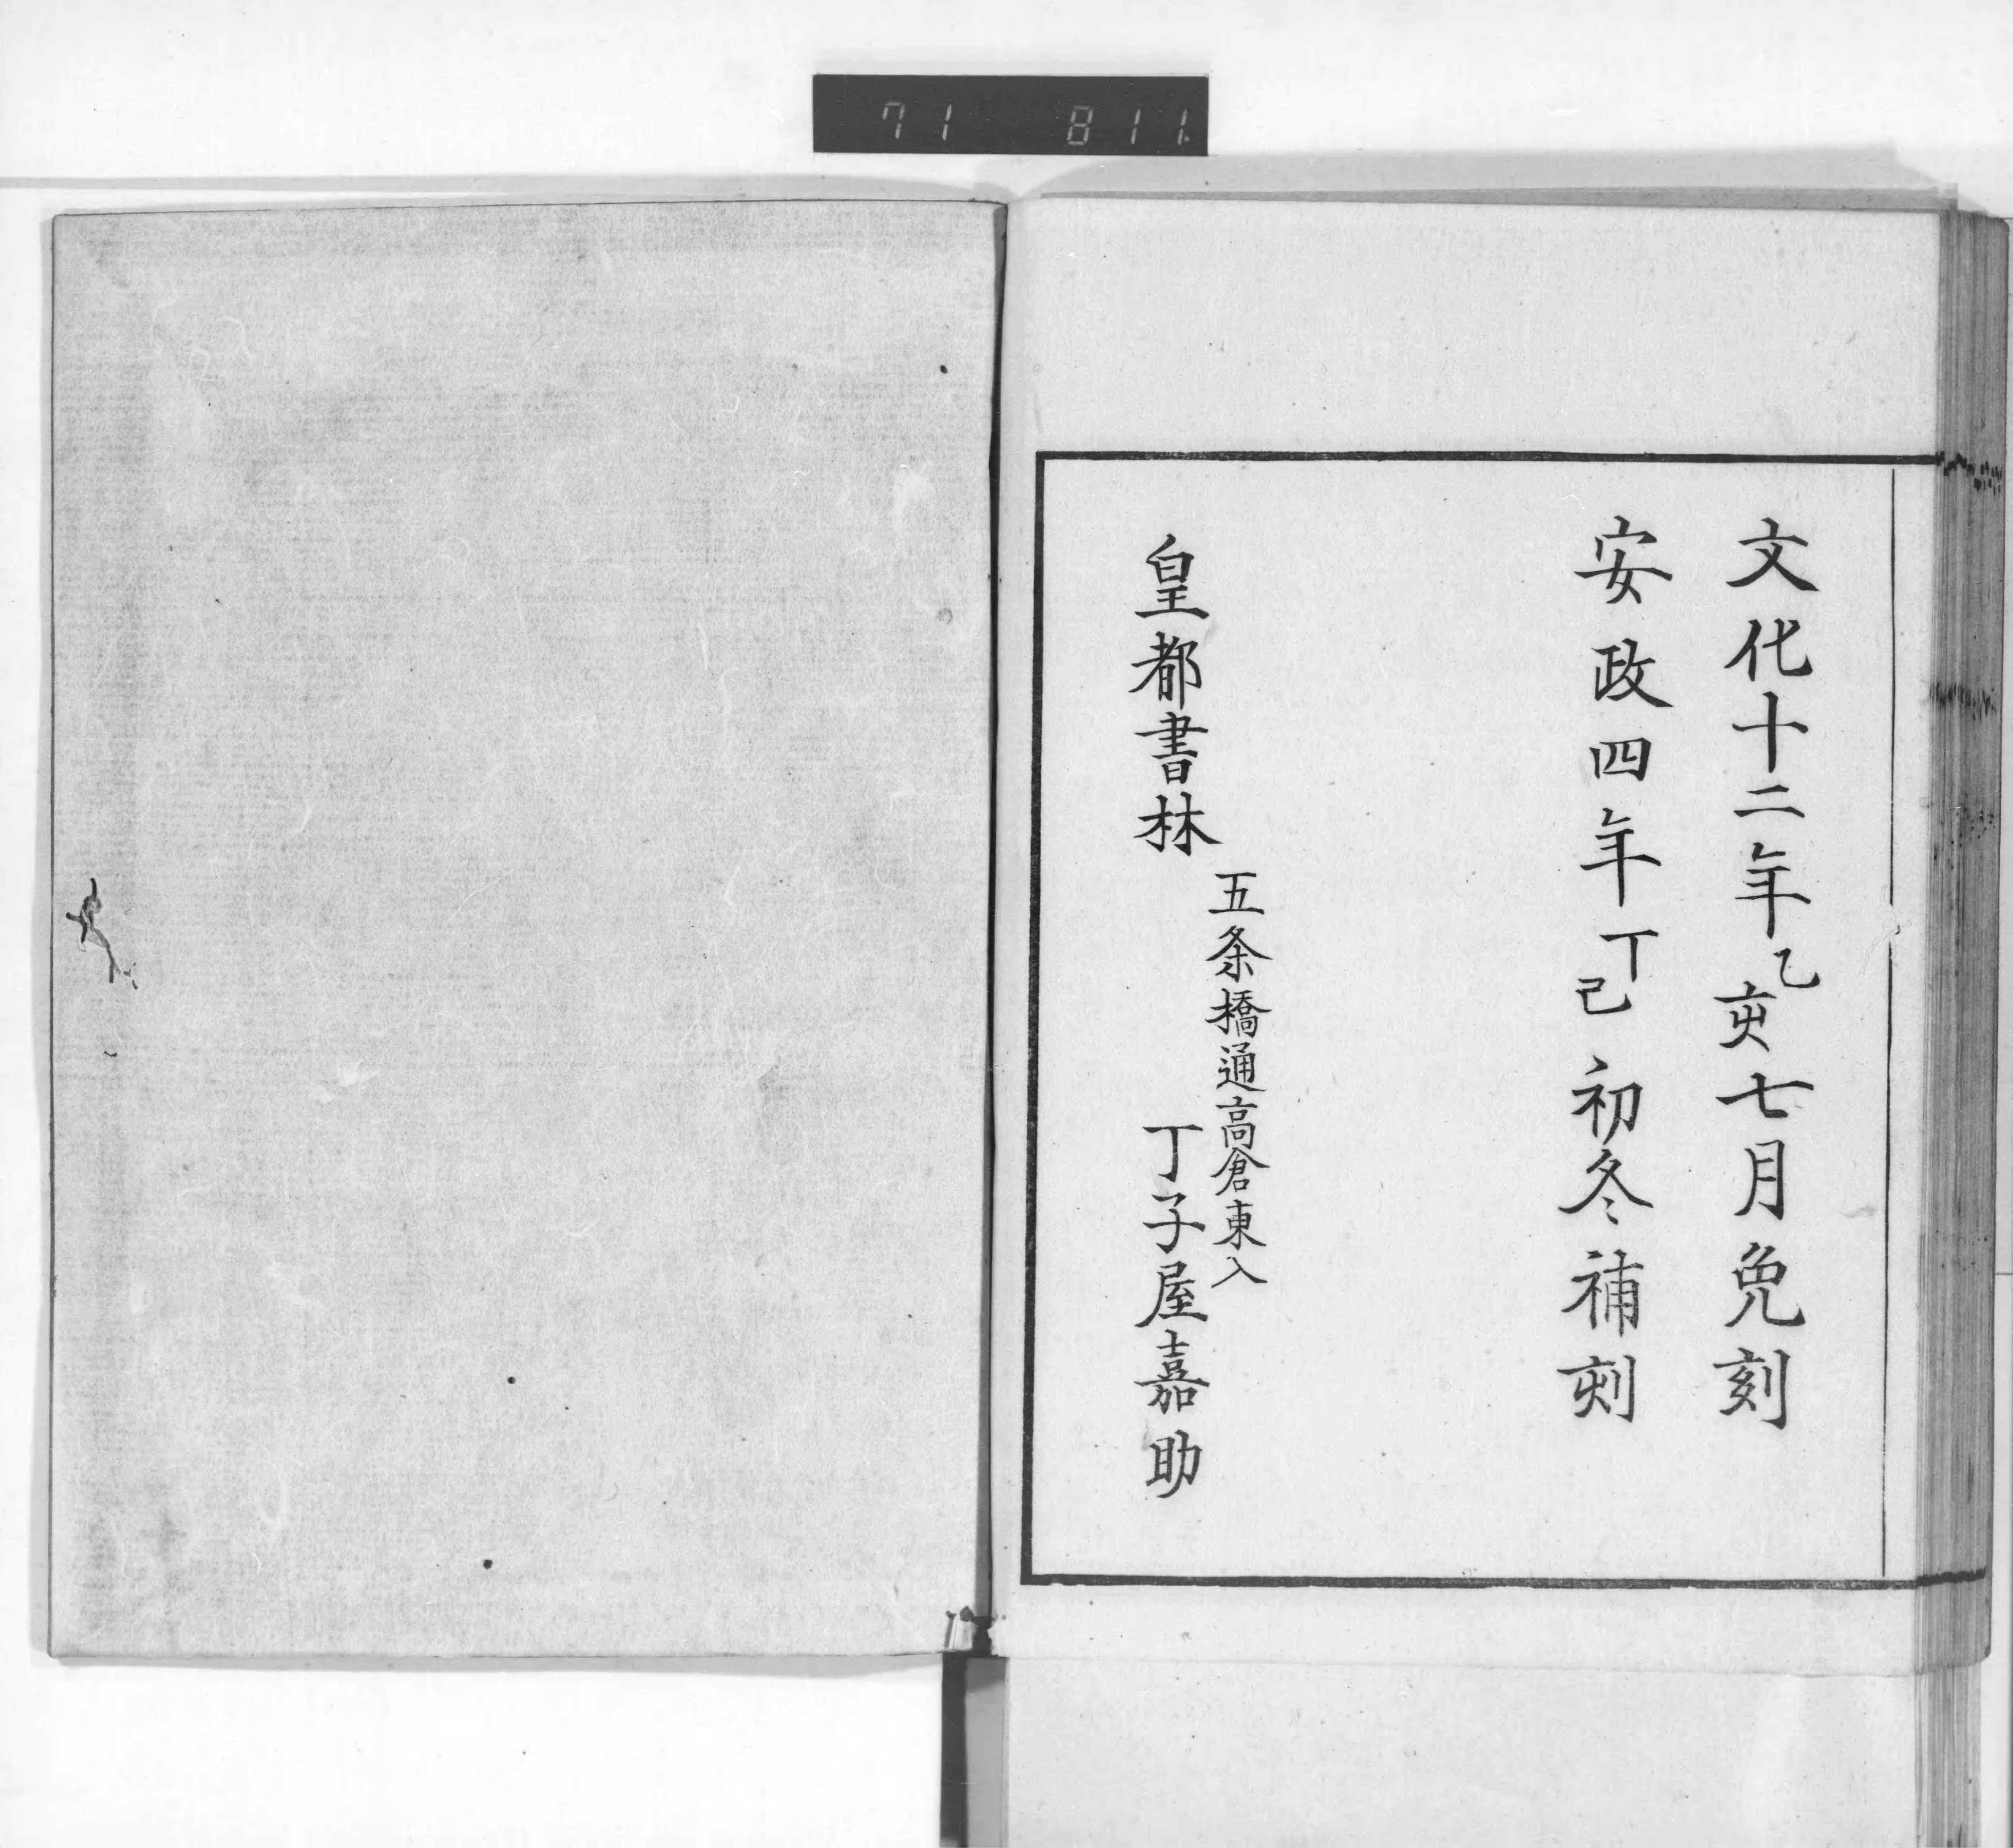 71 811
文化十二年乙亥七月免刻
安政四年丁己初冬補刻
五条橋通高倉東入
皇都書林 丁子屋嘉助